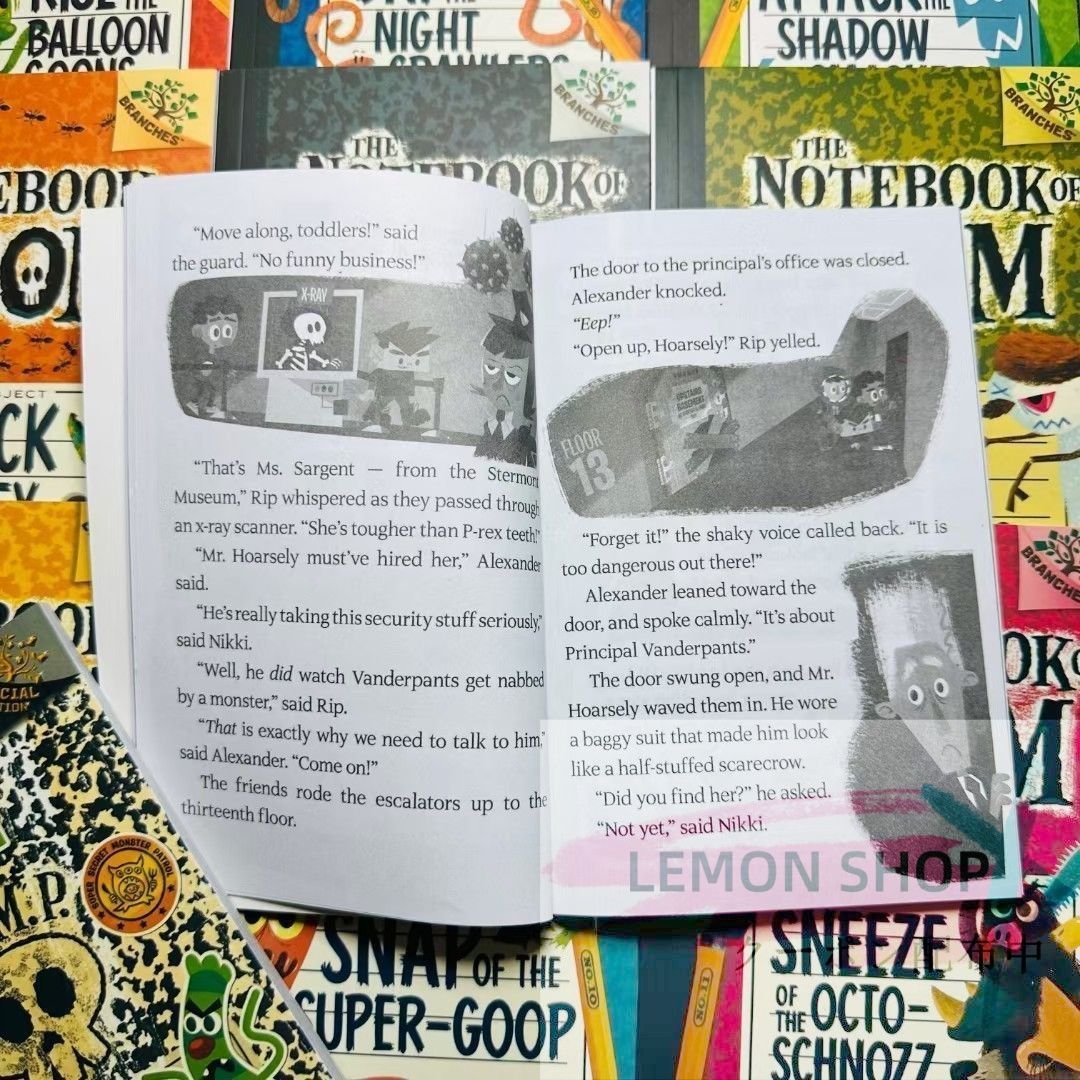 RISE OF THE
BALLOON
GOONS
DAY OF THE
NIGHT
CRAWLERS
ATTACK OF THE
SHADOW
BRANCHES
BRANCHES
BRANCHES
THE
NOTEBOOK OF
THE
NOTEBOOK OF
M
“Move along, toddlers!” said
the guard. “No funny business!”
X-RAY
“That’s Ms. Sargent — from the Stermont
Museum,” Rip whispered as they passed through
an x-ray scanner. “She’s tougher than P-rex teeth!”
“Mr. Hoarsely must’ve hired her,” Alexander
said.
“He’s really taking this security stuff seriously,”
said Nikki.
“Well, he did watch Vanderpants get nabbed
by a monster,” said Rip.
“That is exactly why we need to talk to him,”
said Alexander. “Come on!”
The friends rode the escalators up to the
thirteenth floor.
The door to the principal’s office was closed.
Alexander knocked.
“Eep!”
“Open up, Hoarsely!” Rip yelled.
FLOOR
13
UPSTAIRS
BASEMENT
“Forget it!” the shaky voice called back. “It is
too dangerous out there!”
Alexander leaned toward the
door, and spoke calmly. “It’s about
Principal Vanderpants.”
The door swung open, and Mr.
Hoarsely waved them in. He wore
a baggy suit that made him look
like a half-stuffed scarecrow.
“Did you find her?” he asked.
“Not yet,” said Nikki.
LEMON SHOP
クーポン配布中
BRANCHES
SUPER SECRET MONSTER PATROL
M.P.
SNAP OF THE
SUPER-GOOP
NO.10
NO.11
SNEEZE
OF THE OCTO-
SCHNOZZ